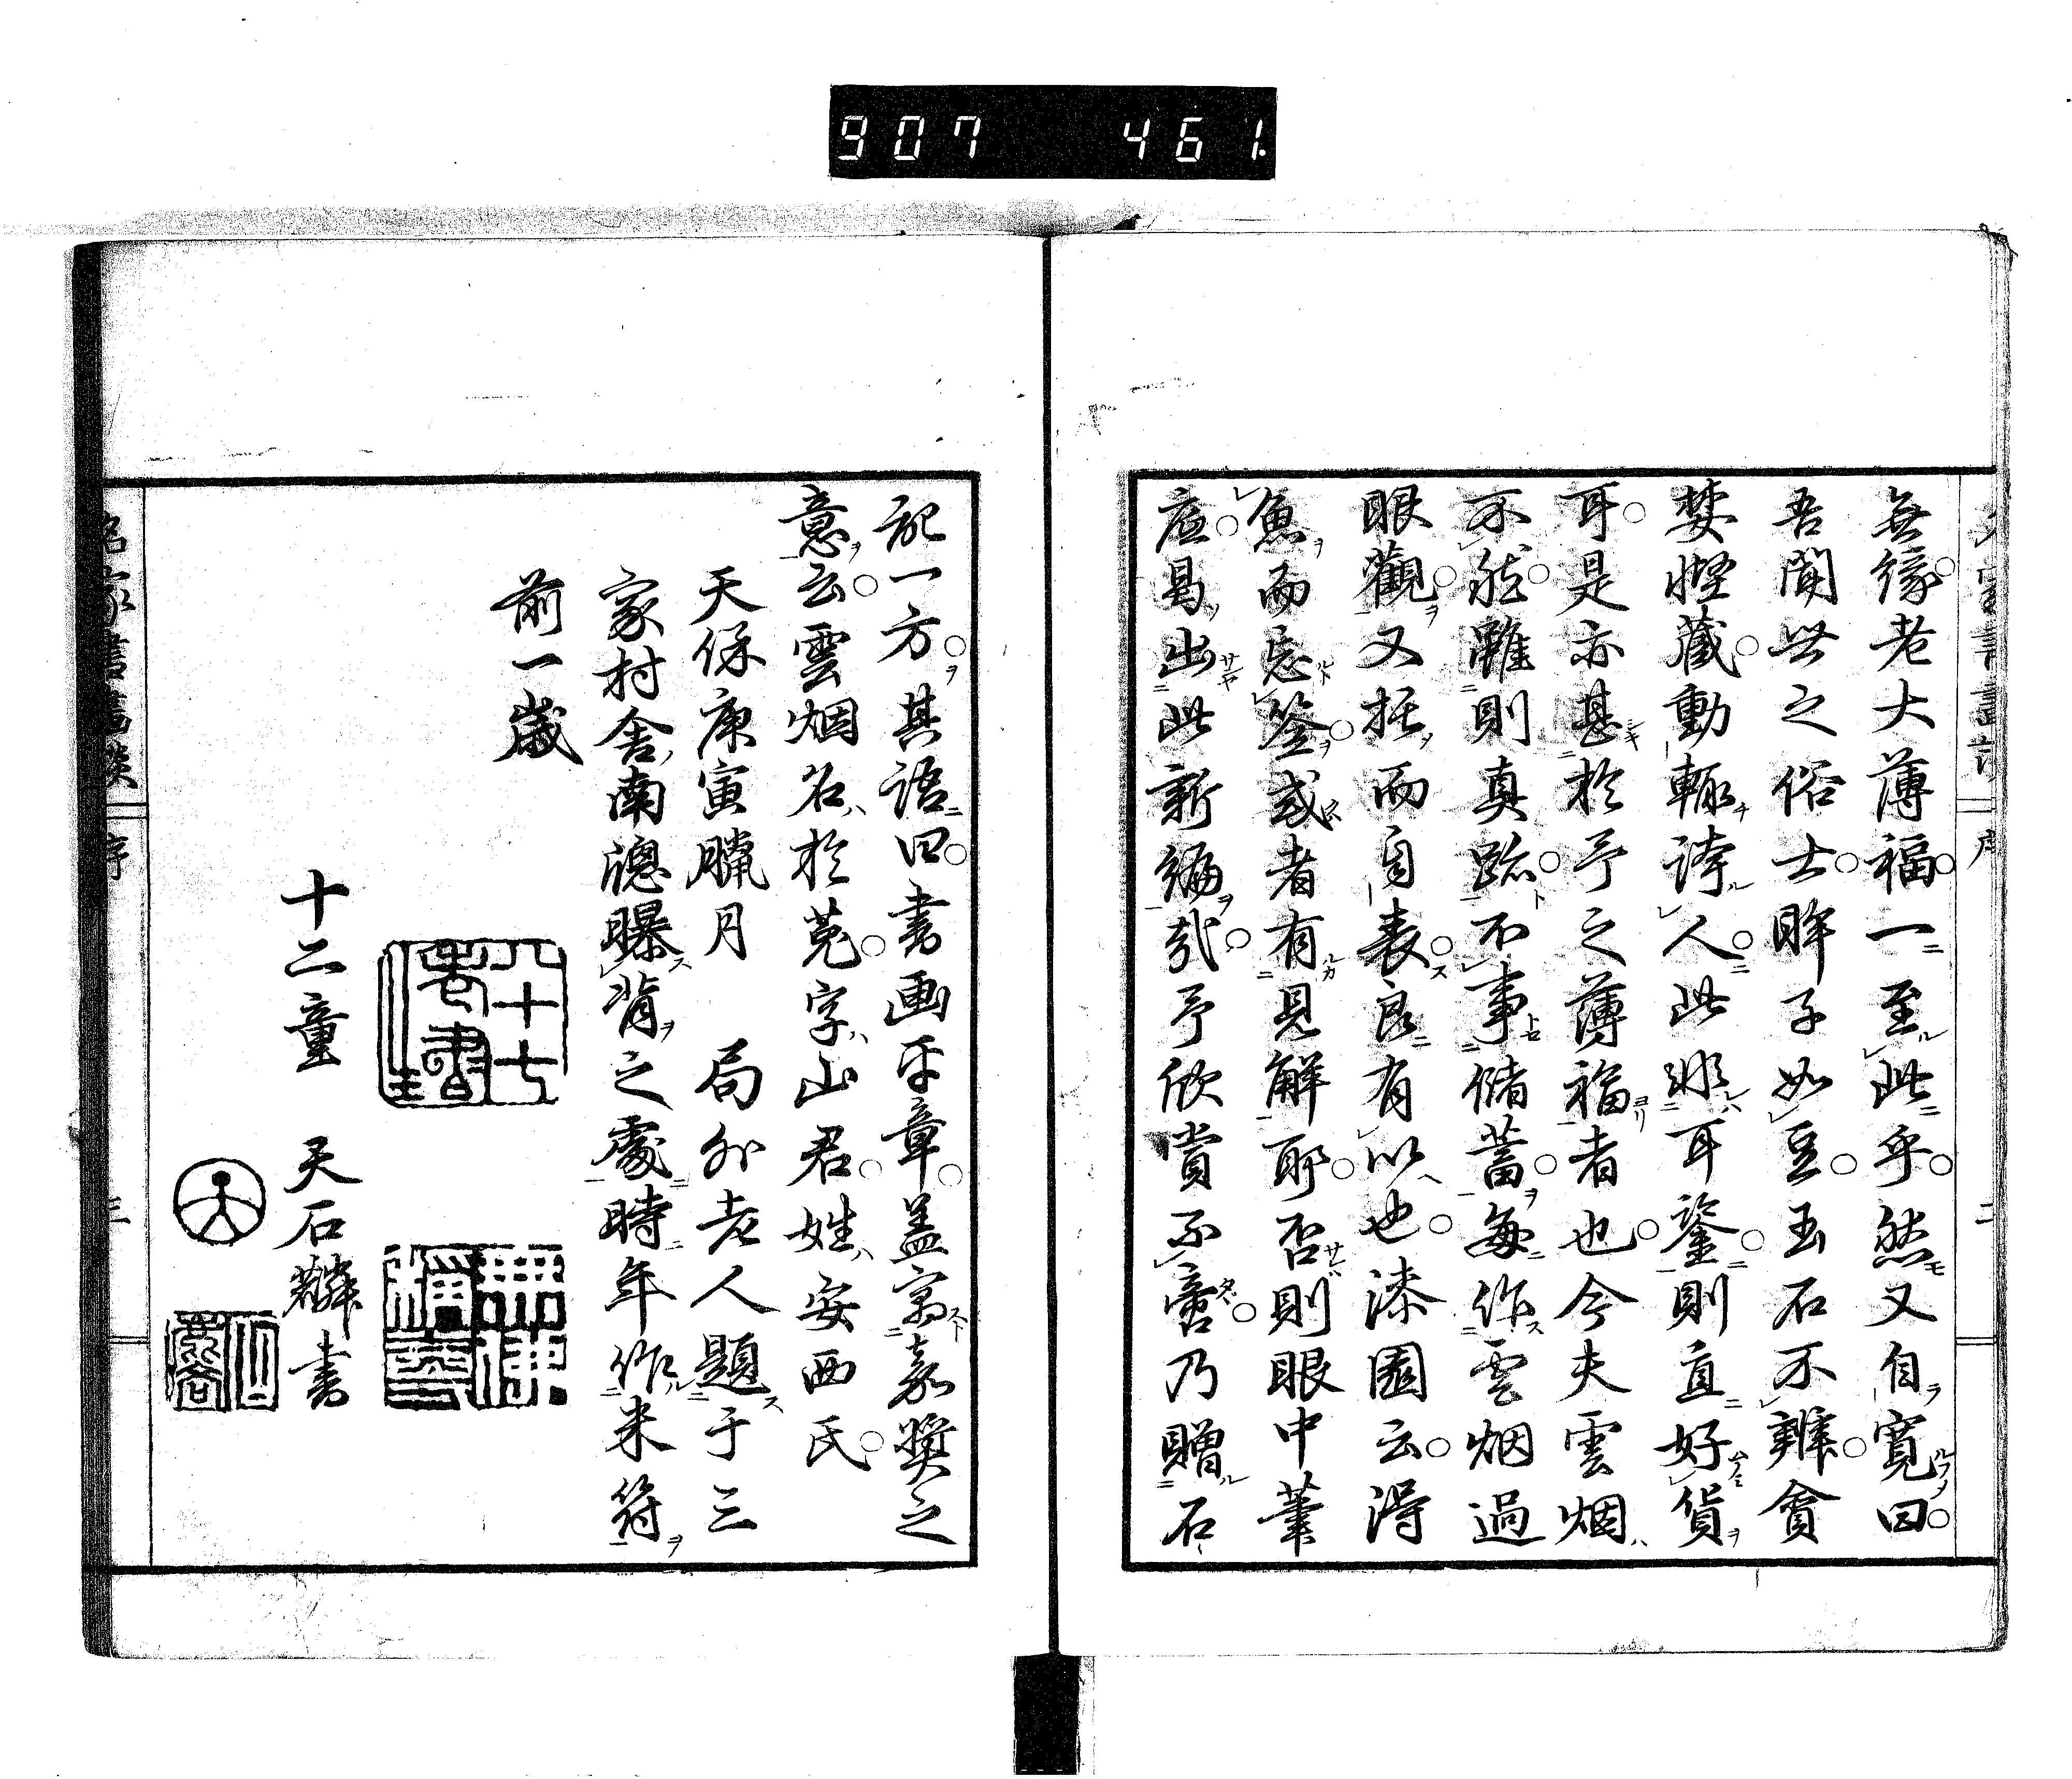 907 461
名家書畫談 序 二
無緣老大薄福一至此乎然又自寬曰
吾聞世之俗士眸子如豆玉石不辨貪
婪慳藏動輙誇人此非耳鑒則直好貨
耳是亦甚於予之薄福者也今夫雲烟
不然雖則真跡不事儲蓄每作雲烟過
眼觀又抂而自表良有以也漆園云得
魚而忘筌或者有見解耶否則眼中葷
症曷出此新編哉予欣賞不啻乃贈石
記一方其語曰書画平章盖寓嘉奬之
意云雲烟名於菟字山君姓安西氏
天保庚寅臘月 局外老人題于三
家村舎南窻曝背之處時年作米符
前一歲
八十七老書生
無佛
十二童 天石麟書
名家書畫談 序 三